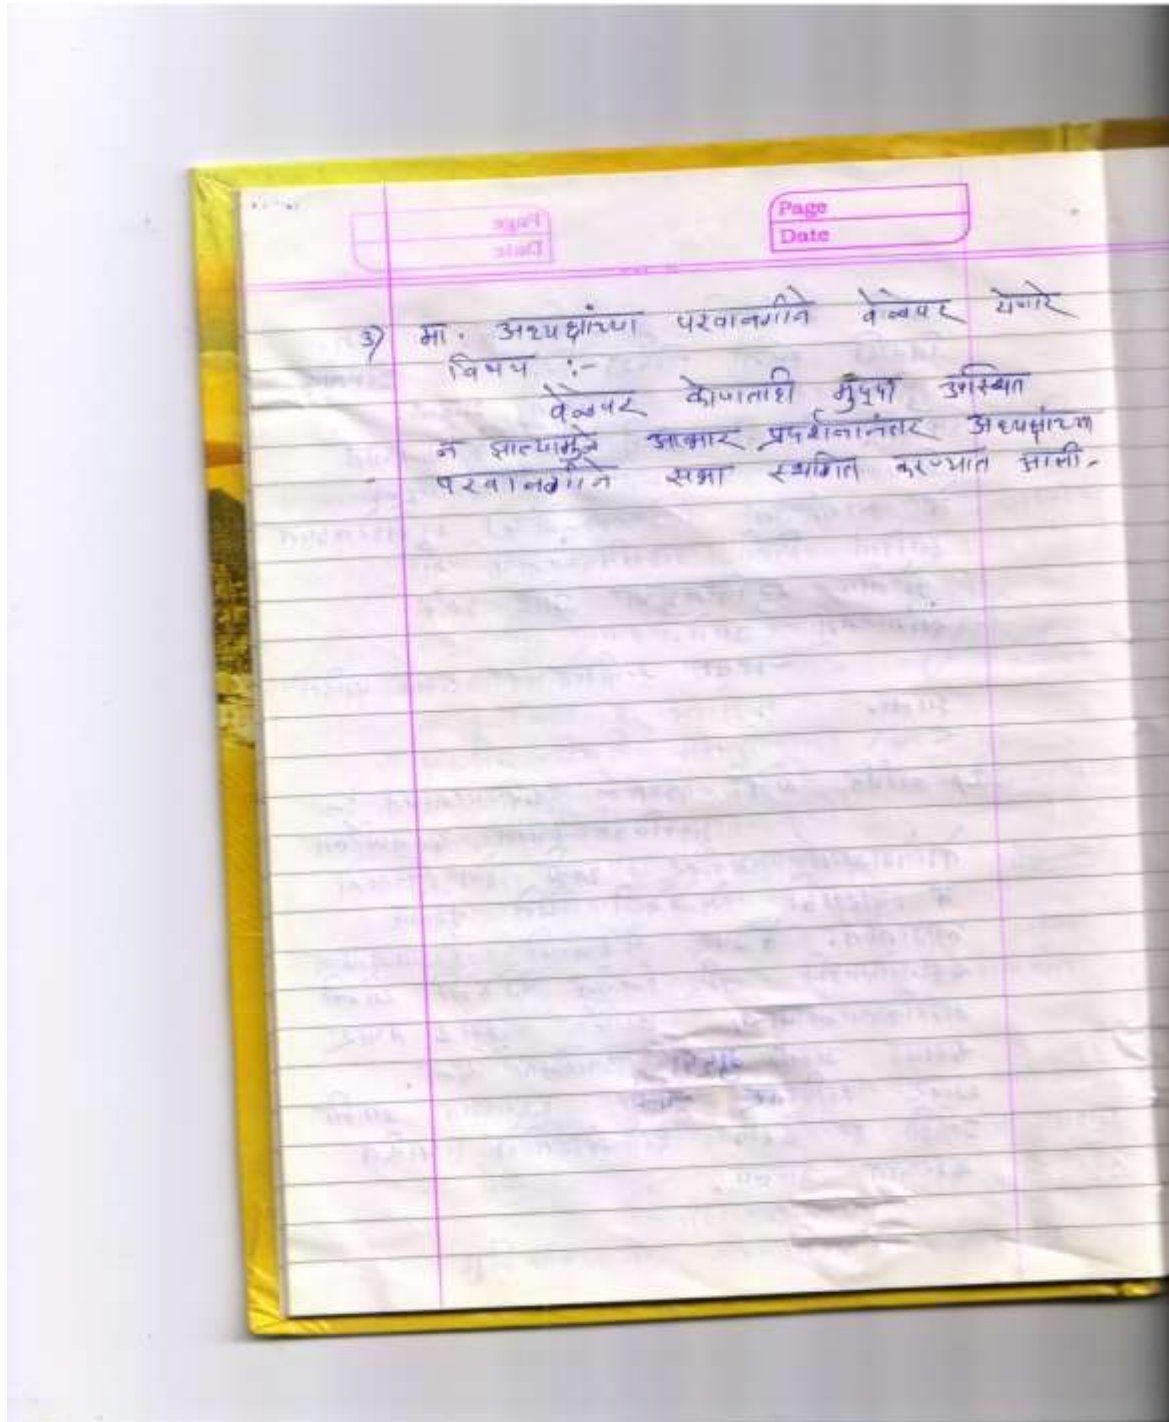 Page
Date
3) मा. अध्यक्षांच्या परवानगीने वेळेवर येणारे
विषय :-
वेळेवर कोणताही मुद्दा उपस्थित
न झाल्यामुळे आभार प्रदर्शनानंतर अध्यक्षांच्या
परवानगीने सभा स्थगित करण्यात आली.